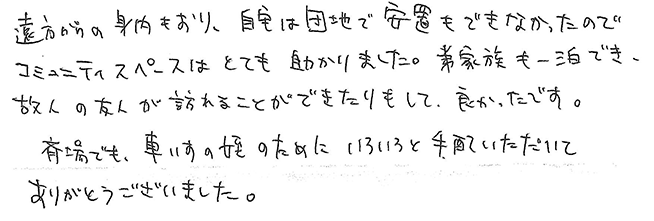 遠方からの身内もおり、自宅は団地で安置もできなかったので
コミュニティスペースはとても助かりました。弟家族も一泊でき、
故人の友人が訪れることができたりもして、良かったです。
斉場でも、車いすの姪のためにいろいろと手配いただいて
ありがとうございました。